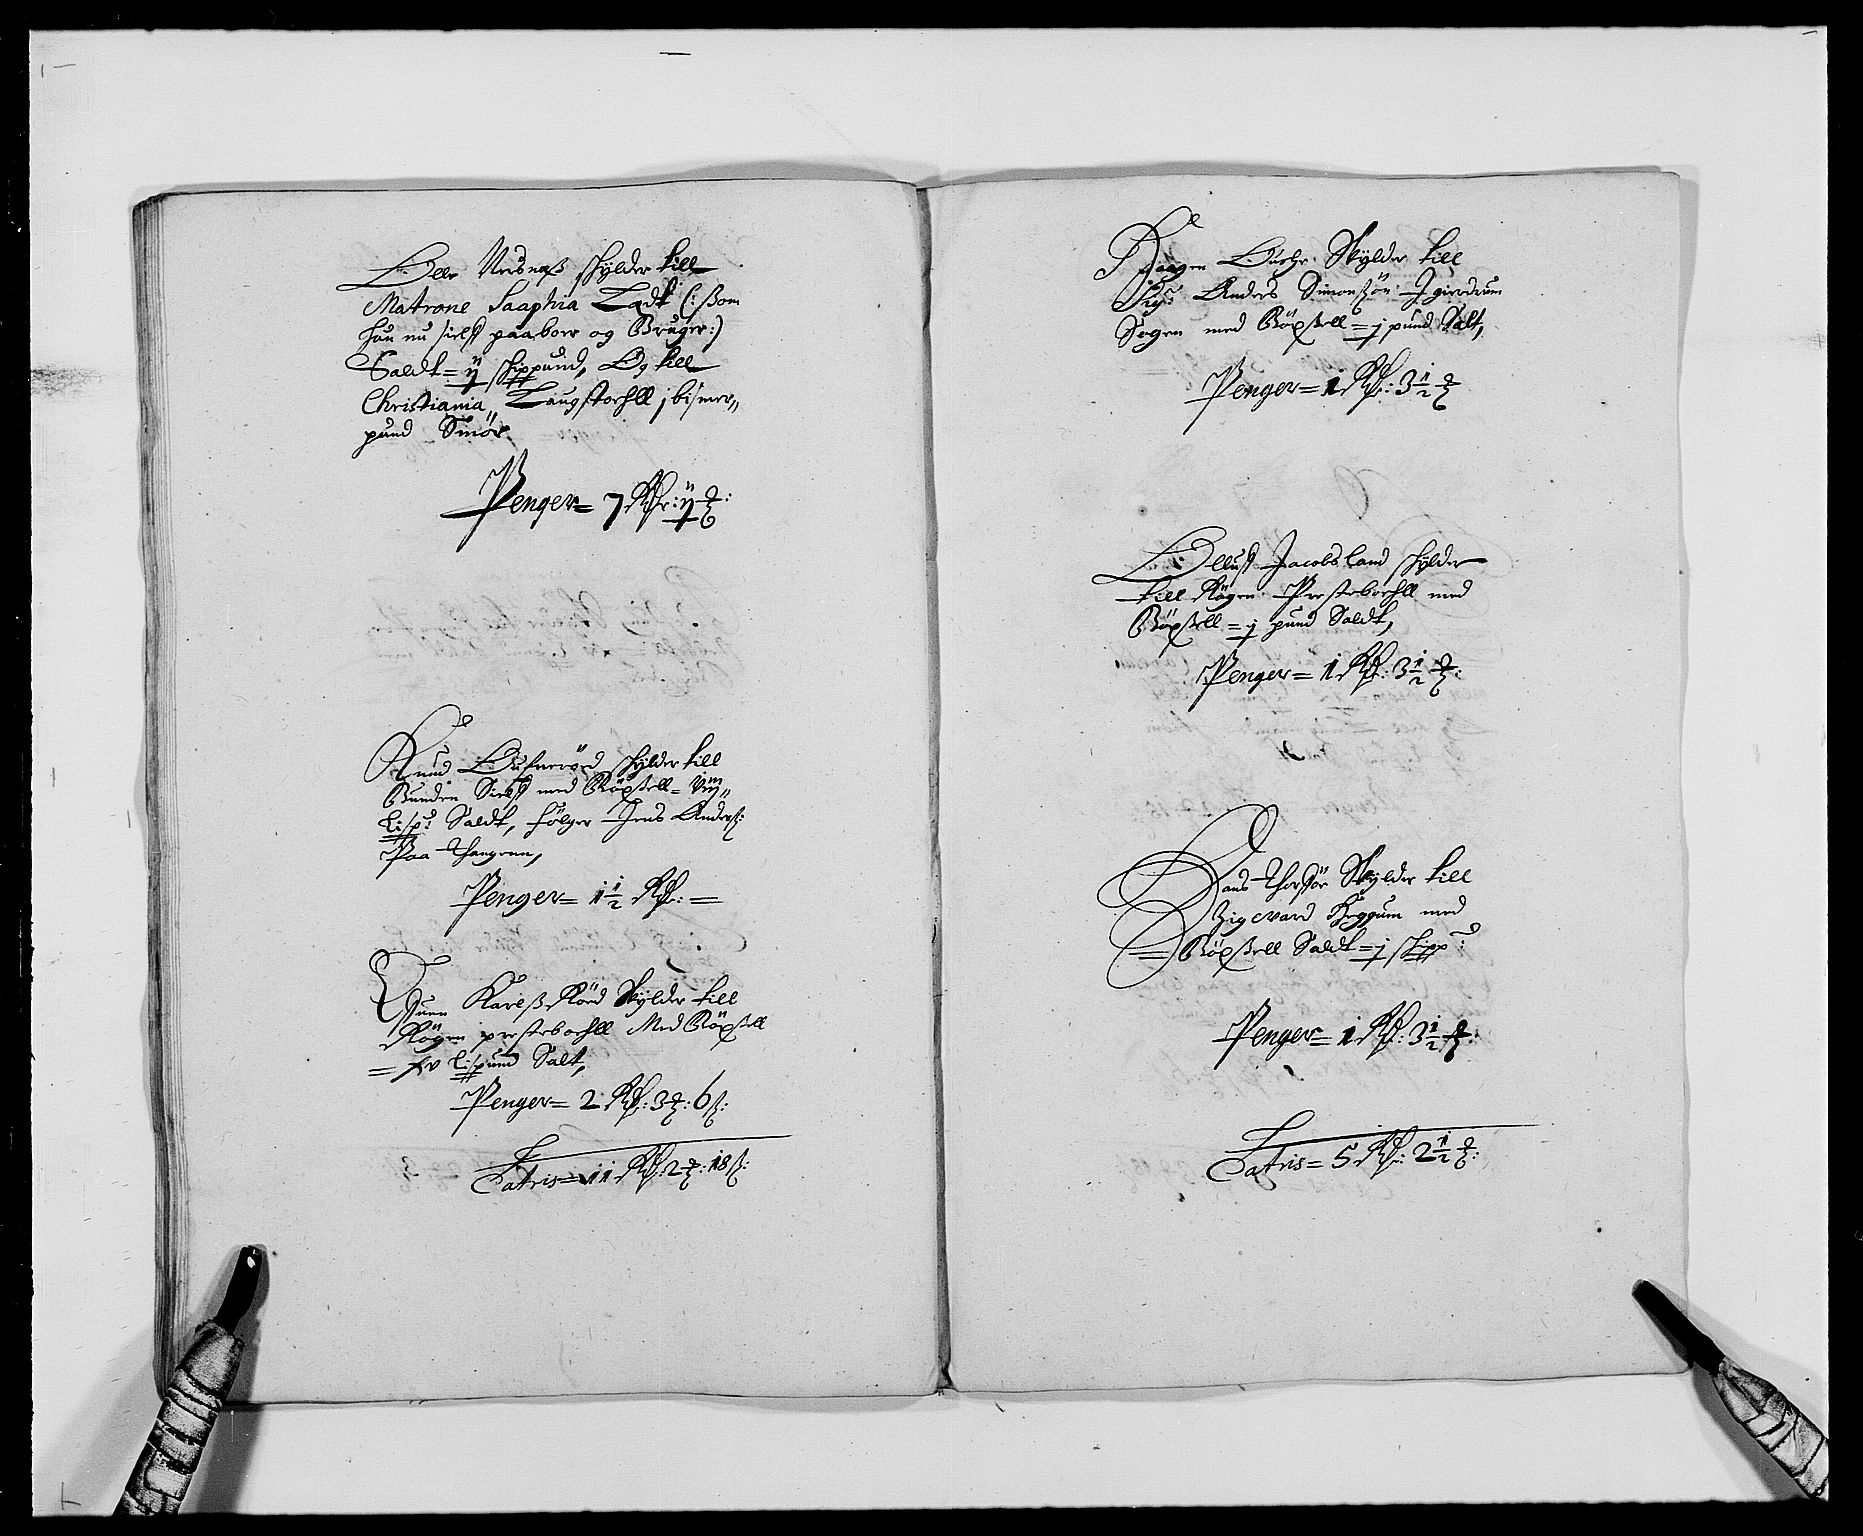 Olle Nersnæß skylder till
Matrone Saaphia Ladt (: ßom
hun nu sielff paaboer og Bruger :)
Saldt = ij skippund, Og till
Christiania Laugstoell j bismer„
pund Smör
Penger = 7 Rdr: ij ort:
Knud Oufneröd skylder till
Bunden Sielff med Böxsell = viij„
Lispd: Saldt, følger Jens Anderß:
Paa Thangenn,
Penger = 1½ Rdr: =
Suen Karlß Röed Skylder till
Rögen presteboehll Med Böxsell
= xv Lispund Salt,
Penger = 2 Rdr: 3 ort: 6 s:
Latris = 11 Rdr: 2 ort: 18 s:
Haagen Ouehr Skylder till
Sigr: Anders Simonsøn J gierdrum
Sogen med Böxsell = j pund Salt,
Penger = 1 Rdr: 3½ ort
Olluff Jacobsland skylder
till Rögen Presteboehll med
Böxsell = j pund Saldt,
Penger = 1 Rdr: 3½ ort:
Hans Thorsör Skylder till
Zigevard Heggum med
= Böxsell Saldt = j skippd:
Penger = 1 Rdr: 3½ ort:
Latris = 5 Rdr: 2½ ort: